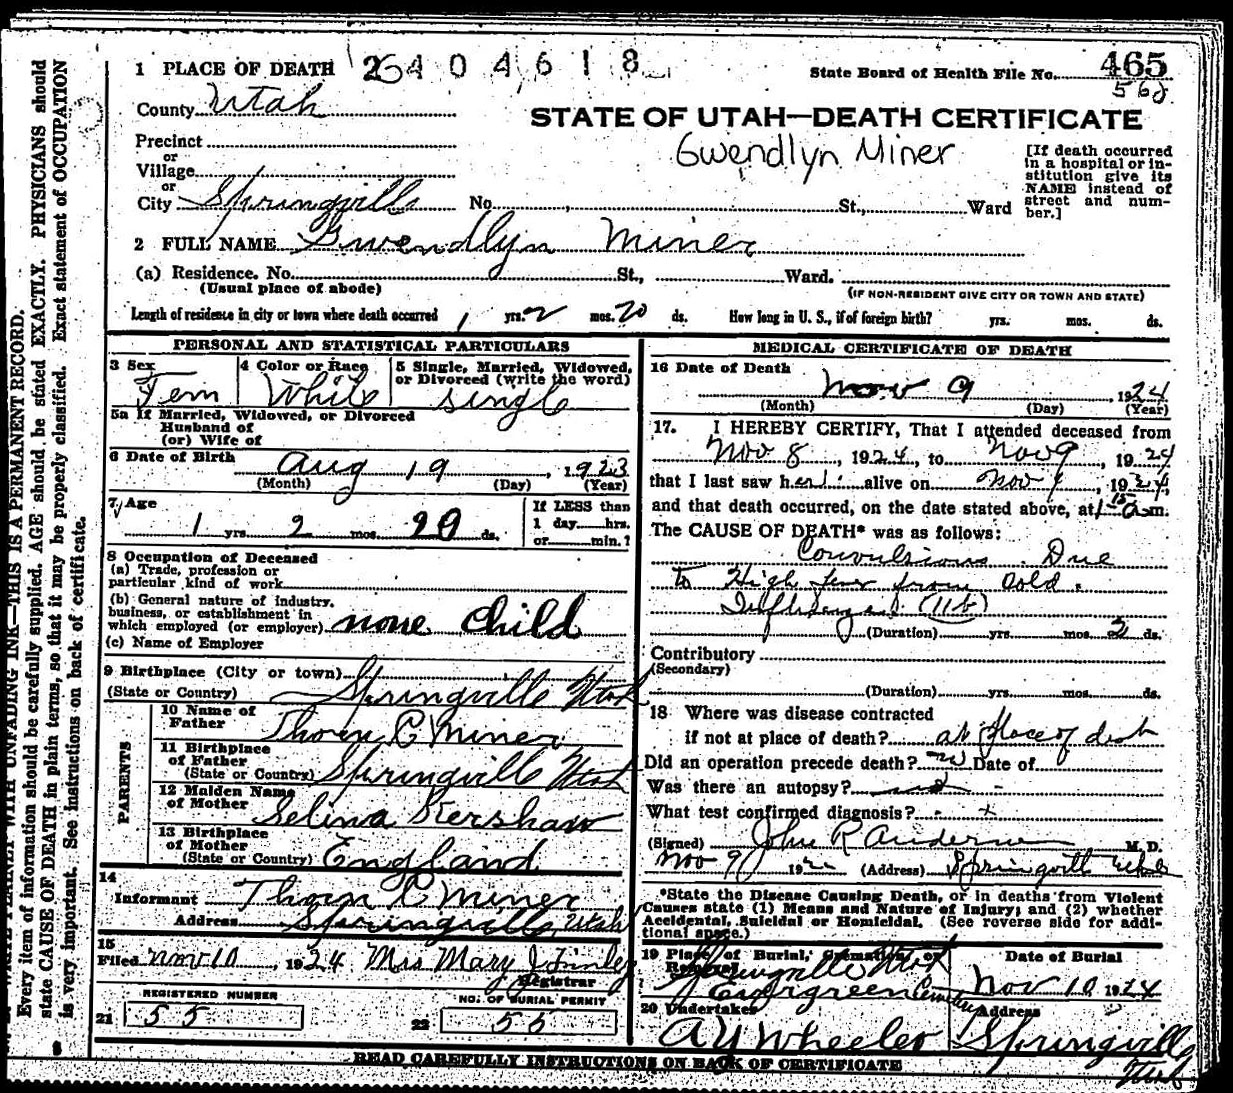 1 PLACE OF DEATH 2404618
State Board of Health File No. 465
568
County Utah
STATE OF UTAH—DEATH CERTIFICATE
Gwendlyn Miner
Precinct
or
Village
or
City Springville No. St., Ward
[If death occurred in a hospital or institution give its NAME instead of street and number.]
2 FULL NAME Gwendlyn Miner
(a) Residence. No. St., Ward.
(Usual place of abode) (IF NON-RESIDENT GIVE CITY OR TOWN AND STATE)
Length of residence in city or town where death occurred 1 yrs. 2 mos. 20 ds. How long in U. S., if of foreign birth? yrs. mos. ds.
PERSONAL AND STATISTICAL PARTICULARS
3 Sex 4 Color or Race 5 Single, Married, Widowed, or Divorced (write the word)
Fem White single
5a If Married, Widowed, or Divorced
Husband of
(or) Wife of
6 Date of Birth Aug 19, 1923
(Month) (Day) (Year)
7 Age If LESS than
1 yrs. 2 mos. 20 ds. 1 day hrs.
or min.?
8 Occupation of Deceased
(a) Trade, profession or
particular kind of work
(b) General nature of industry,
business, or establishment in
which employed (or employer) none child
(c) Name of Employer
9 Birthplace (City or town)
(State or Country) Springville Utah
PARENTS
10 Name of
Father Thorn C Miner
11 Birthplace
of Father
(State or Country) Springville Utah
12 Maiden Name
of Mother Selina Kershaw
13 Birthplace
of Mother
(State or Country) England
14
Informant Thorn C Miner
Address Springville, Utah
15
Filed Nov 10, 1924 Mrs Mary J Finley
Registrar
REGISTERED NUMBER NO. OF BURIAL PERMIT
21 55 22 55
MEDICAL CERTIFICATE OF DEATH
16 Date of Death Nov 9, 1924
(Month) (Day) (Year)
17. I HEREBY CERTIFY, That I attended deceased from
Nov 8, 1924, to Nov 9, 1924
that I last saw her alive on Nov 9, 1924,
and that death occurred, on the date stated above, at 1 15 a.m.
The CAUSE OF DEATH* was as follows:
Convulsions Due
to High fever from Cold.
Influenza (11b)
(Duration) yrs. mos. 2 ds.
Contributory
(Secondary)
(Duration) yrs. mos. ds.
18 Where was disease contracted
if not at place of death? at place of death
Did an operation precede death? no Date of
Was there an autopsy?
What test confirmed diagnosis? - +
(Signed) John R Anderson M. D.
Nov 9, 192 (Address) Springville Utah
*State the Disease Causing Death, or in deaths from Violent
Causes state (1) Means and Nature of Injury; and (2) whether
Accidental, Suicidal or Homicidal. (See reverse side for addi-
tional space.)
19 Place of Burial, Cremation, or Removal Date of Burial
Springville Utah
Evergreen Cemetery Nov 10 1924
20 Undertaker Address
A Y Wheeler Springville
Utah
READ CAREFULLY INSTRUCTIONS ON BACK OF CERTIFICATE
WRITE PLAINLY WITH UNFADING INK—THIS IS A PERMANENT RECORD.
Every item of information should be carefully supplied. AGE should be stated EXACTLY. PHYSICIANS should
state CAUSE OF DEATH in plain terms, so that it may be properly classified. Exact statement of OCCUPATION
is very important. See instructions on back of certificate.